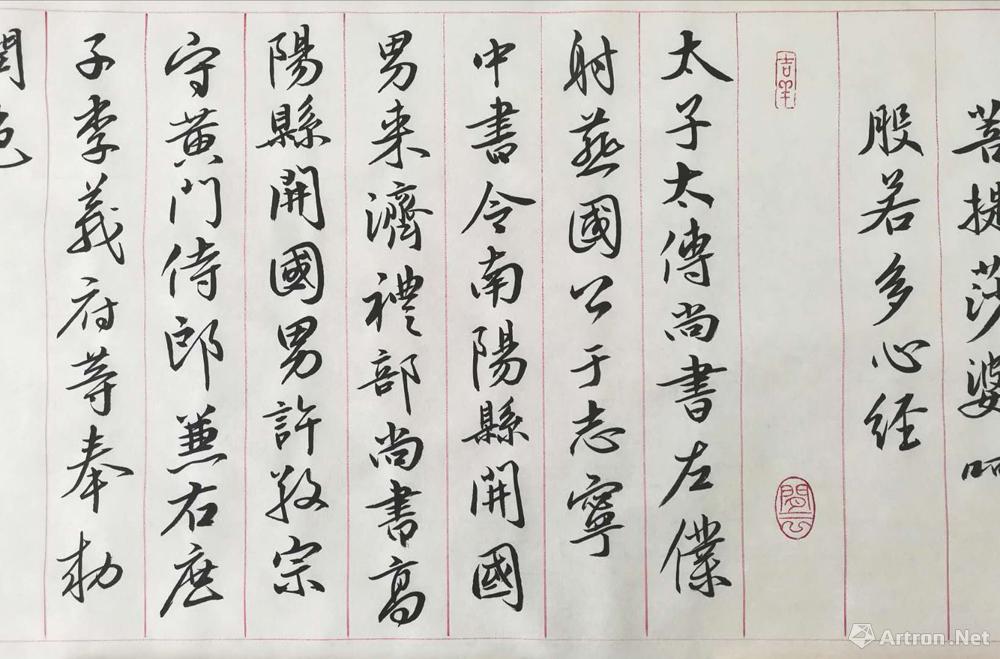 菩提莎婆呵
般若多心经
太子太傅尚書左僕
射燕國公于志寧
中書令南陽縣開國
男来濟禮部尚書高
陽縣開國男許敬宗
守黄门侍郎兼右庶
子李義府等奉勅
閏色
吉羊
Artron.Net